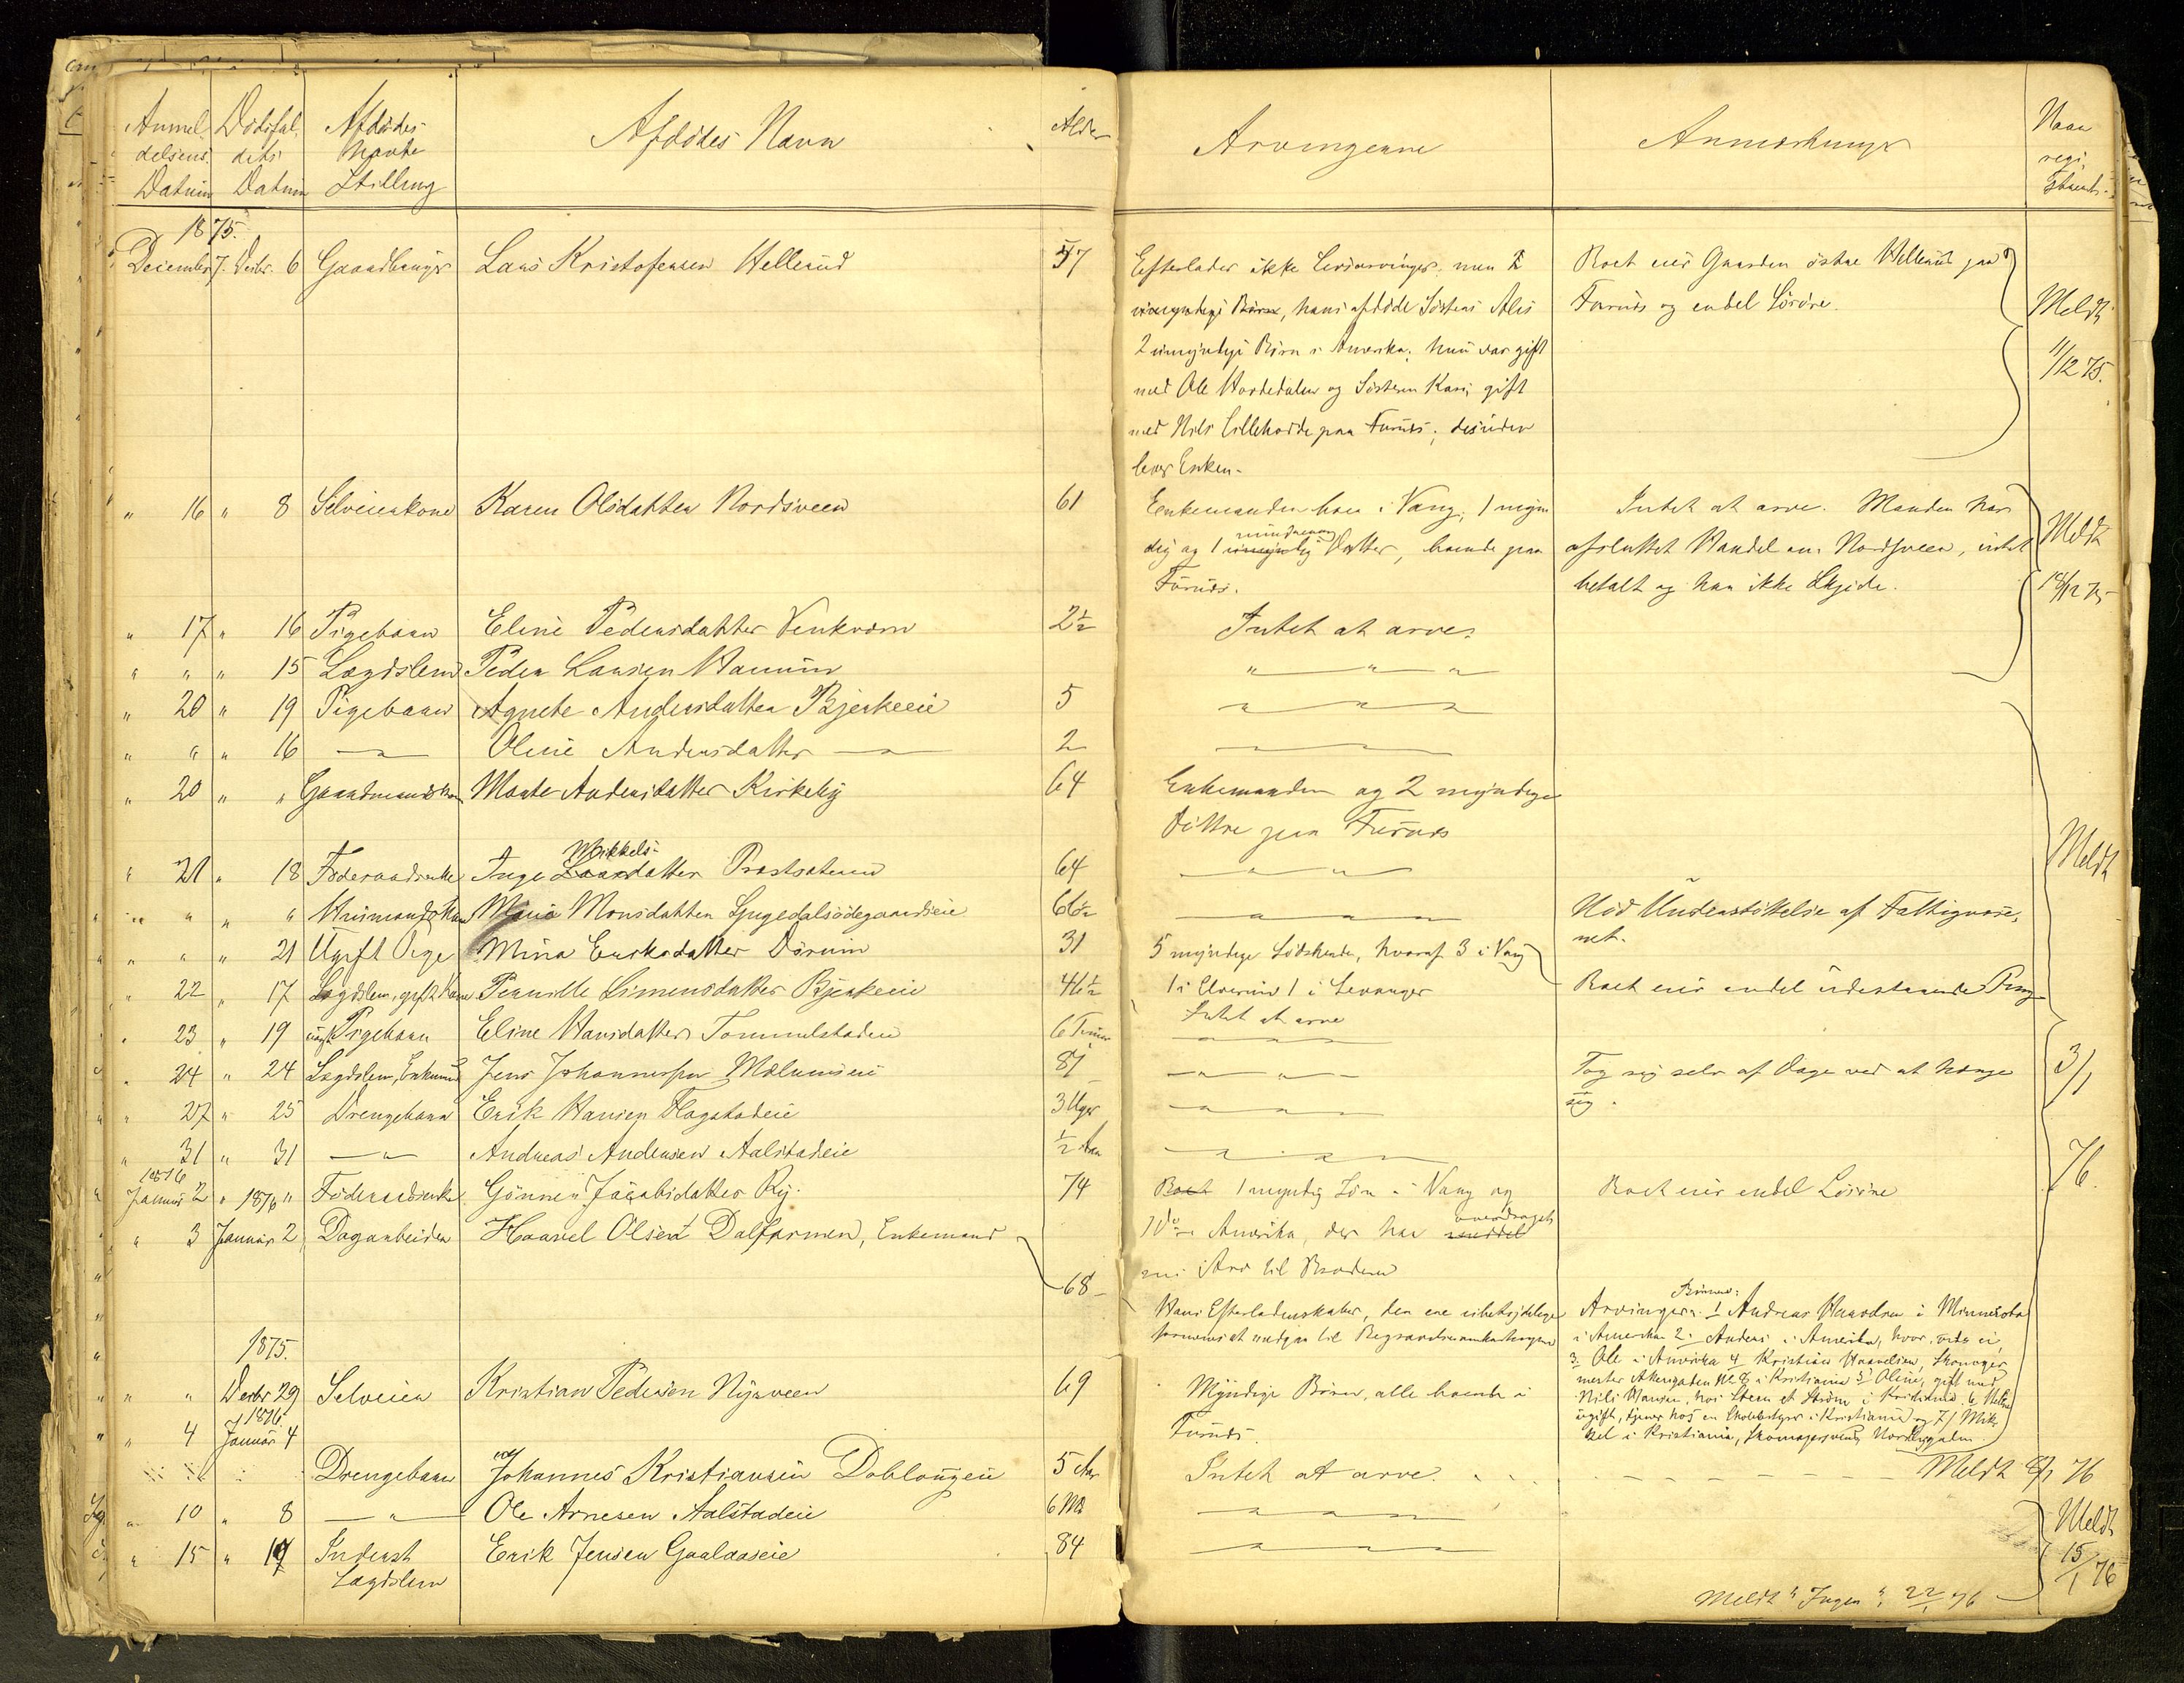 Anmeldelsens Datum
Dødsfaldets Datum
Afdødes Stilling
Afdødes Navn
Alder
Arvingerne
Anmærkninger
Naar regi
1875.
December 7. Decbr. 6 Gaardbruger Lars Kristofersen Hellerud 57
Efterlader ikke Livsarvinger, men 2
umyndige Børn, hans afdøde Søsters Alis
2 umyndige Børn i Amerika; hun var gift
med Ole Hordedalen og Søsteren Kari, gift
med Nils Lillehorde paa Furnes; desuden
lever Enken.
Boet eier Gaarden østre Hellerud paa
Furnes og endel Løsøre.
Meldt
11/12 75.
" 16 " 8 Selveierkone Karen Olsdatter Nordsveen 61
Enkemanden boer i Vang, 1 myn
dig og 1 umyndig mindreaarig Datter, boende paa
Furnes.
Intet at arve. Manden har
afsluttet Handel om Nordsveen, intet
betalt og har ikke Skjøde.
Meldt
18/12 75
" 17 " 16 Pigebarn Eline Pedersdatter Venkværn 2½ Intet at arve.
" " " 15 Lægdslem Peder Larsen Hamum " " "
" 20 " 19 Pigebarn Agnete Andersdatter Bjerkeeie 5 " " "
" " " 16 — " — Oline Andersdatter — " — 2
" 20 " " Gaardmandskone Marte Andersdatter Kirkeby 64 Enkemanden og 2 myndige
Døttre paa Furnes
" 21 " 18 Føderaadsenke Inge Larsdatter Mikkels- Prestsæteren 64 " " "
" " " " Husmandskone Maria Monsdatter Gugedalsødegaardseie 66½ " " "
Nød Understøttelse af Fattigvæse-
net.
" " " 21 Ugift Pige Mina Eriksdatter Dørum 31 5 myndige Sødskende, hvoraf 3 i Vang
1 i Elverum 1 i Levanger
Boet eier endel udestaaende Penge
" 22 " 17 Lægdslem, gift Kone Pernille Simensdatter Bjerkeeie 46½
Intet at arve
" 23 " 19 Pigebarn Eline Hansdatter Tommelstadeie 6 Timer " " "
" 24 " 24 Lægdslem, Enkemand Jens Johannessen Mælumseie 87 " " "
Tog sig selv af Dage ved at hænge
sig.
" 27 " 25 Drengebarn Erik Hansen Flagstadeie 3 Uger " " "
" 31 " 31 — " — Andreas Andersen Aalstadeie ½ Aar " " "
Meldt
3/1
76.
1876
Januar 2 " 1876 " Føderaadsenke Gønner Jacobsdatter Ry. 74
Boet 1 myndig Søn i Vang og
1 do i Amerika, der har overdraget
sin Arv til Broderen
Boet eier endel Løsøre
" 3 Januar 2 Dagarbeider Haavel Olsen Dalfarmen, Enkemand 68
Hans Efterladenskaber, den ene ubetydelige
formenes at medgaa til Begravelsesomkostningerne
Børnene:
Arvinger. 1 Andreas Haavelsen i Minnesota
i Amerika 2. Anders i Amerika, hvor, vides ei,
3. Ole i Amerika 4 Kristian Haavelsen, Skomager
mester Akersgaden No 8 i Kristiania 5 Oline, gift med
Nils Hansen, hos Steen et Strøm i Kristiania 6 Helene
ugift, tjener hos en i Kristiania og 7/ Mik
kel i Kristiania, Skomagersvend,
1875.
" " Decbr 29 Selveier Kristian Pedersen Nysveen 69 Myndige Børn, alle boende i
Furnes.
1876.
" 4 Januar 4 Drengebarn Johannes Kristiansen Doblougeie 5 Aar Intet at arve.
Meldt 8/1 76
" 10 " 8 — " — Ole Arnesen Aalstadeie 6 Md " " "
" 15 " 19 Inderst Erik Jensen Gaalaaseie 84 " " "
Lægdslem
Meldt
15/1 76
Meldt "Ingen" 22/1 76